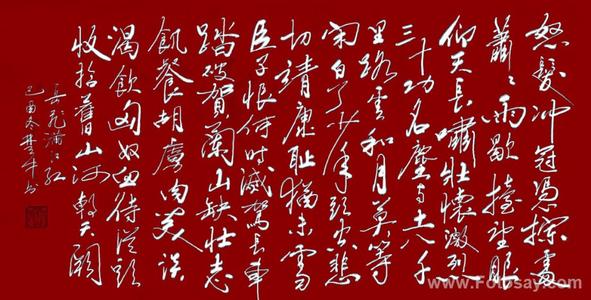 怒髮冲冠憑欄處
蕭々雨歇擡望眼
仰天長嘯壯懷激烈
三十功名塵与土八千
里路雲和月莫等
閑白了少年頭空悲
切靖康耻猶未雪
臣子恨何时滅駕長車
踏破賀蘭山缺壯志
飢餐胡虜肉笑談
渴飲匈奴血待從頭
收拾舊山河朝天闕
岳飛滿江紅
www.Fotosay.com